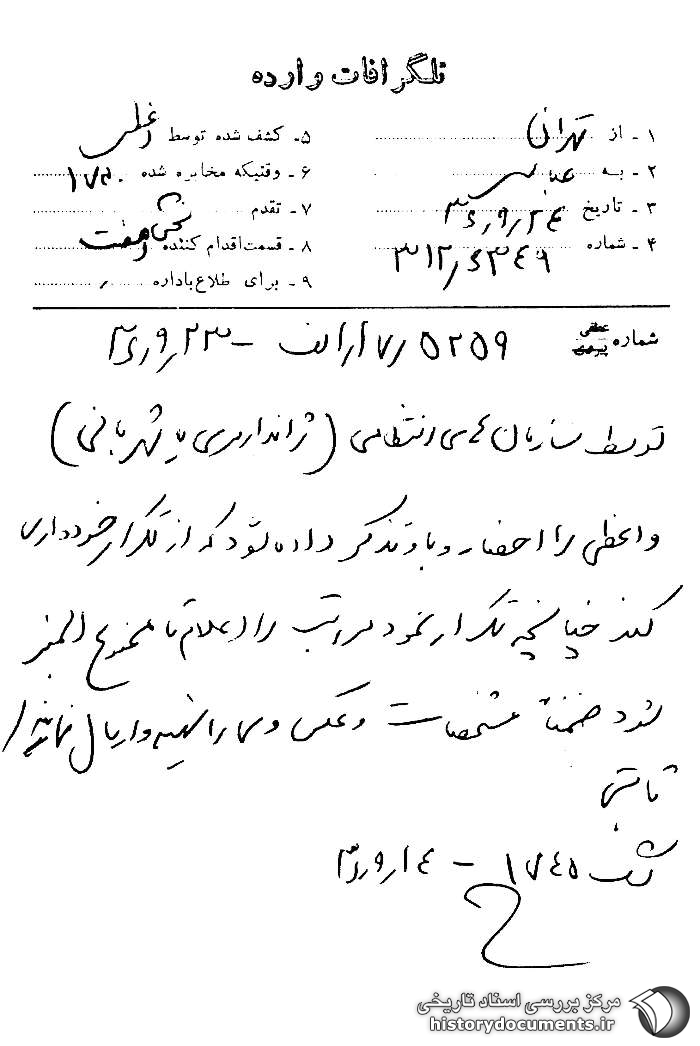 تلگرافات وارده
۱ - از تهران
۲ - به
۳ - تاریخ ۳۶/۹/۲۴
۴ - شماره ۳۱۲/۶۳۴۹
۵ - کشف شده توسط
۶ - وقتیکه مخابره شده ۱۷۳۰
۷ - تقدم
۸ - قسمت اقدام کننده
۹ - برای طلاع باداره
شماره عطفی پیروی ۵۲۵۹ /۷ ار الف - ۳۶/۹/۲۳
توسط سازمان های انتظامی (ژاندارمری یا شهربانی)
واعظی را احضار و باو تذکر داده شود که از تکرار خودداری
کند چنانچه تکرار نمود مراتب را اعلام تا ممنوع المنبر
شود ضمنا مشخصات و عکس وی را تهیه و ارسال نمایند/
ثابتی
کشف ۱۷۴۵ -
مرکز بررسی اسناد تاریخی
historydocuments.ir